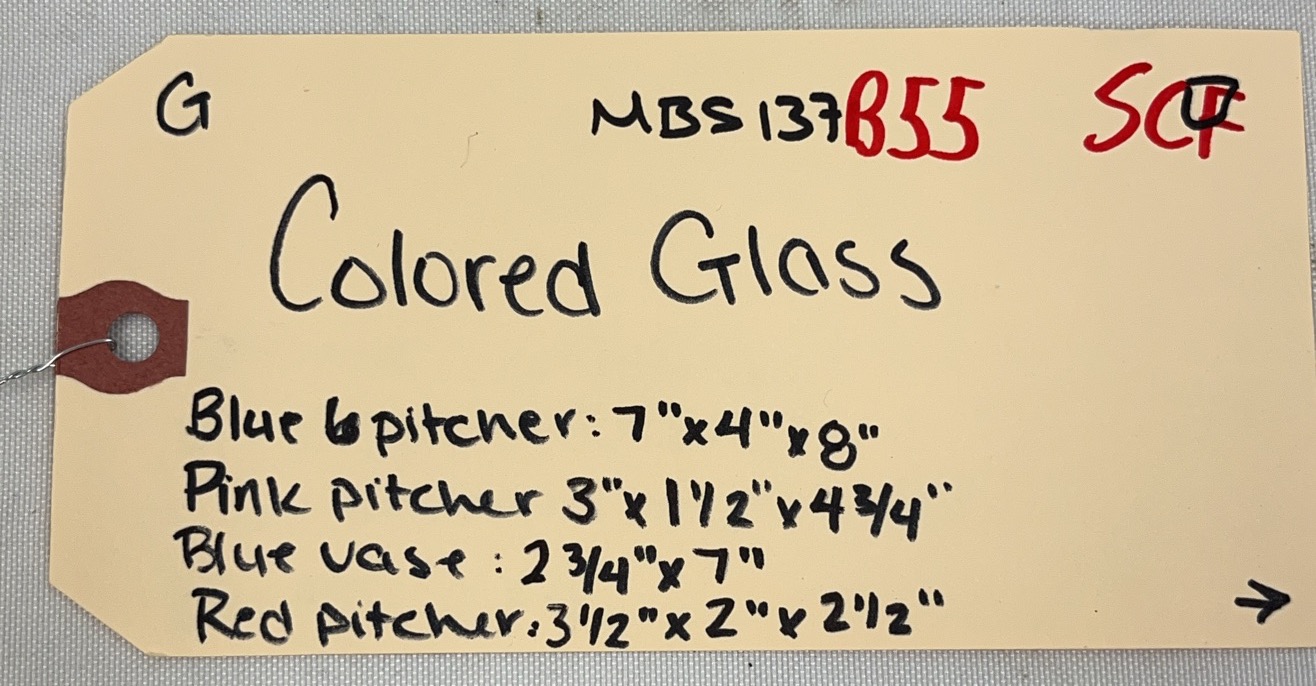 G MBS 137 B55 SC
Colored Glass
Blue pitcher: 7" x 4" x 8"
Pink pitcher 3" x 1 1/2" x 4 3/4"
Blue vase: 2 3/4" x 7"
Red pitcher: 3 1/2" x 2" x 2 1/2"
→